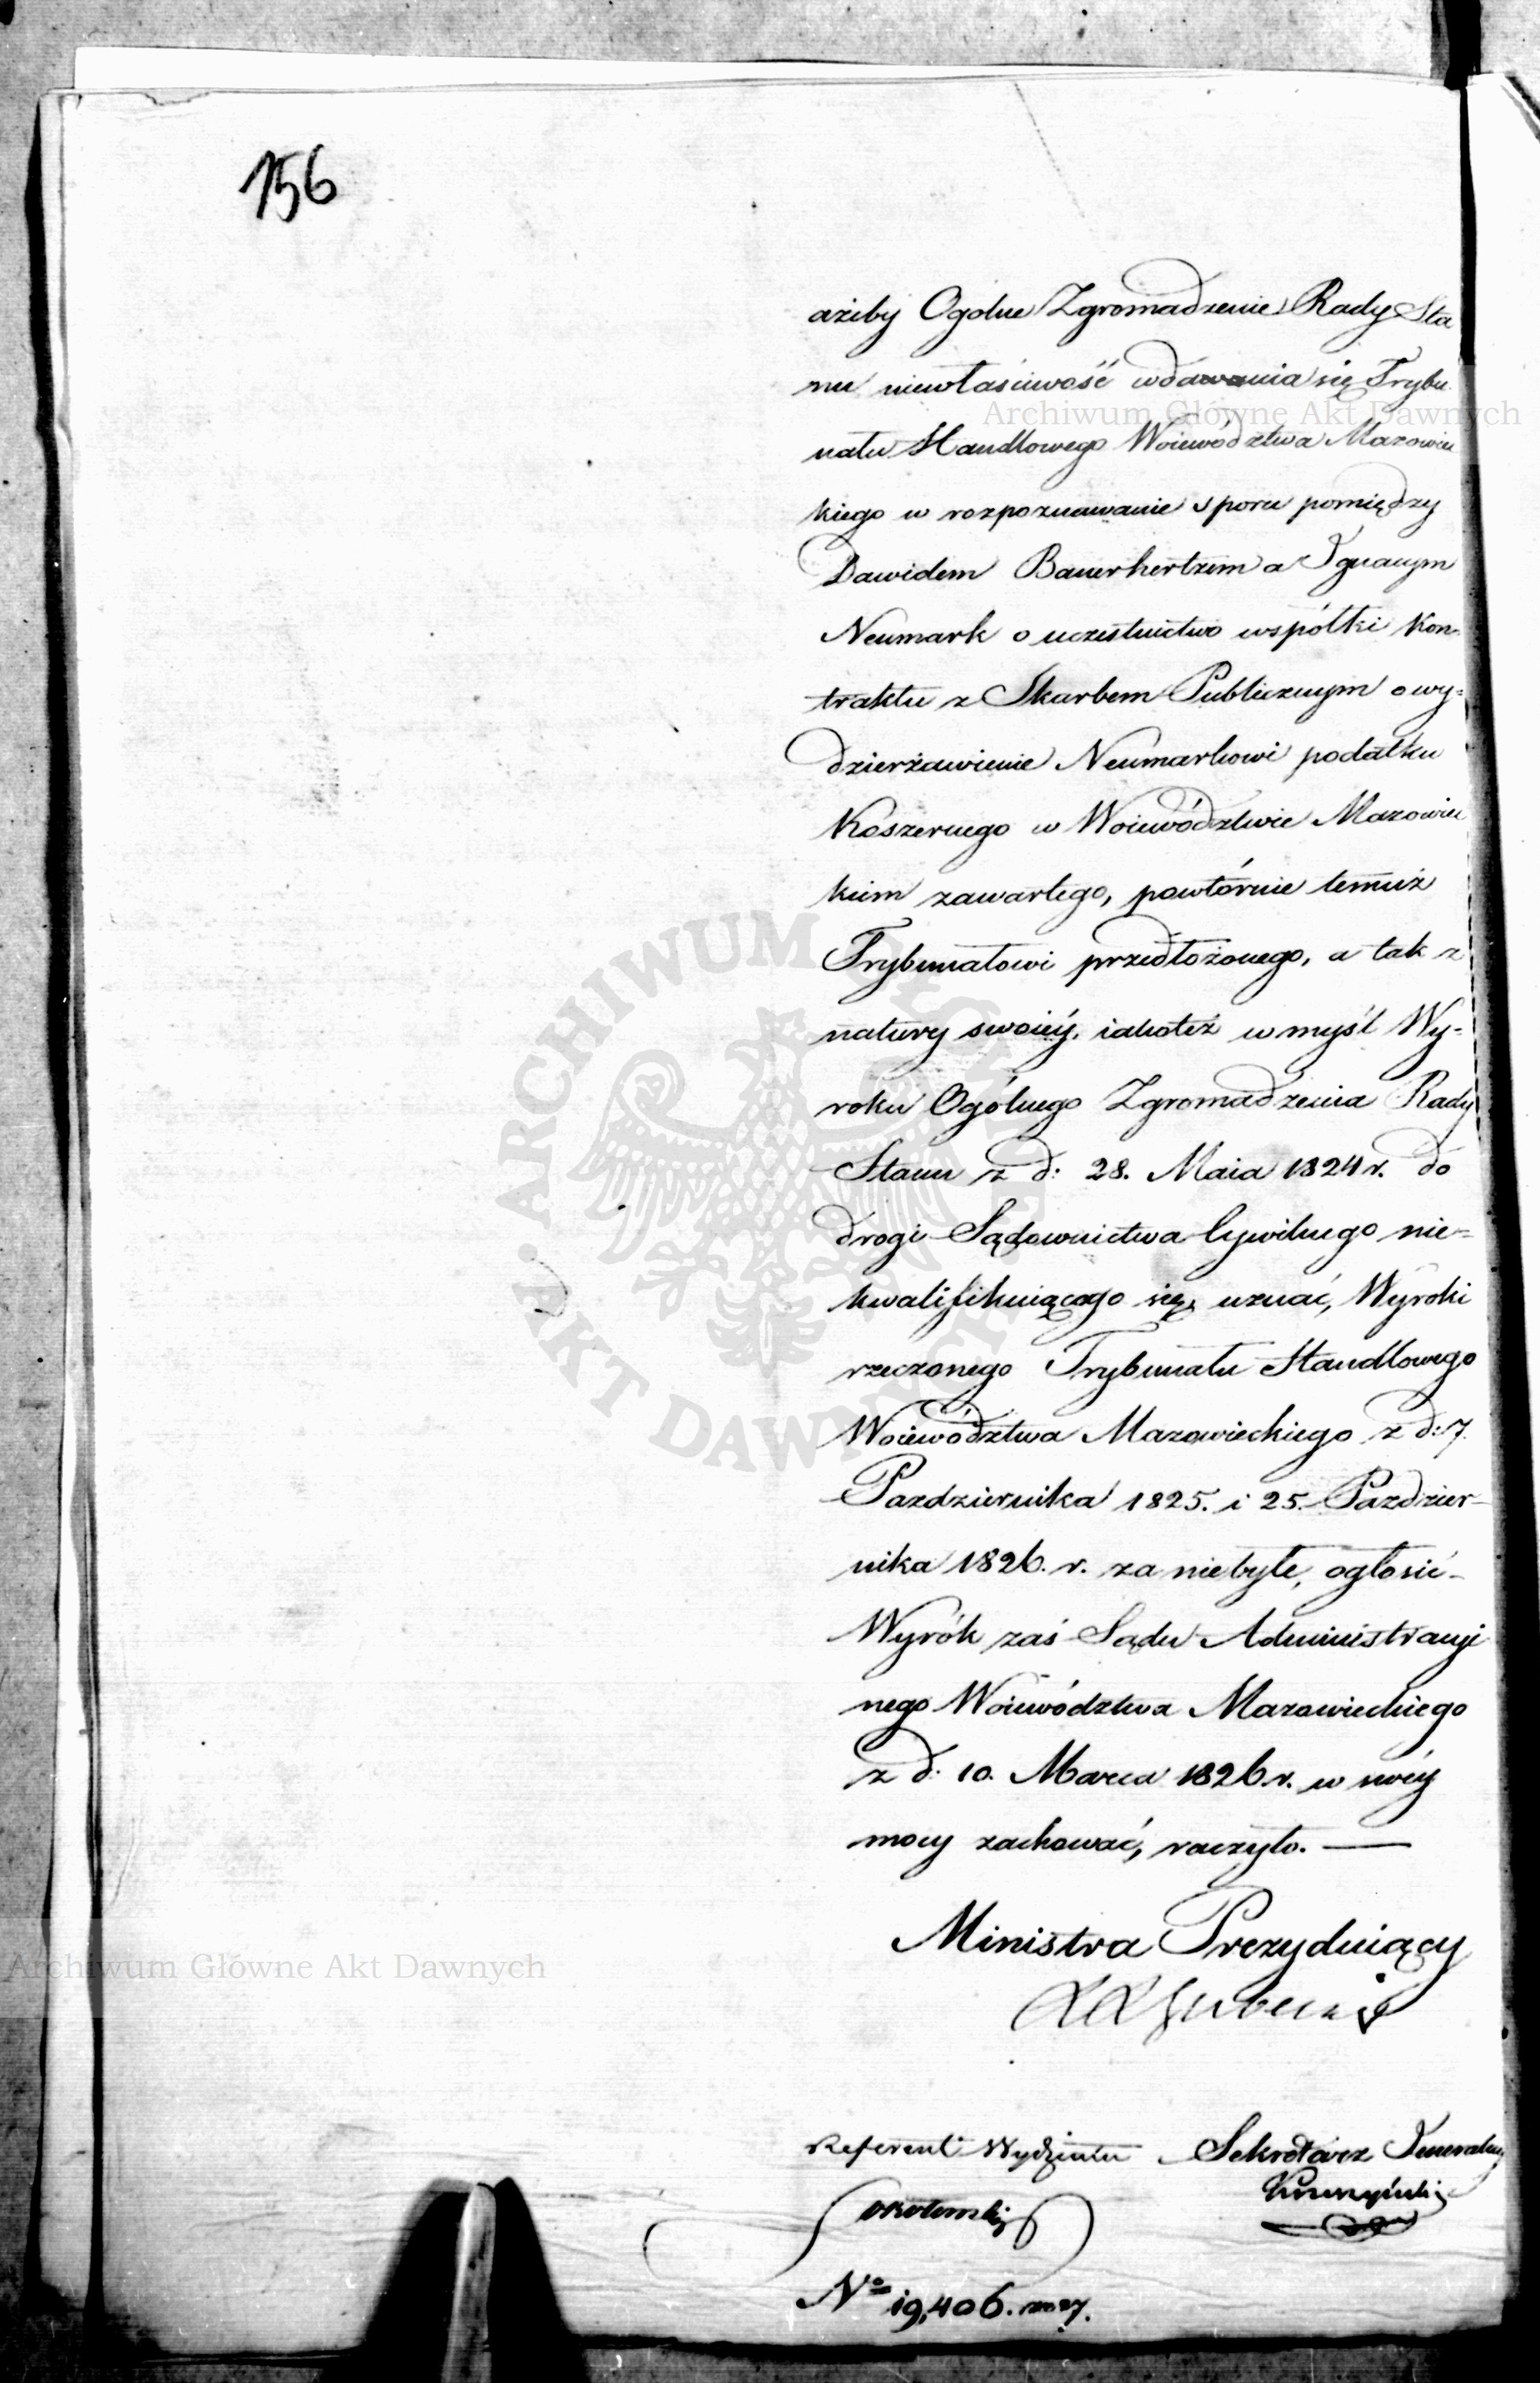 156
ażeby Ogolne Zgromadzenie Rady Sta
nu niewłaściwość wdawania się Trybu
nału Handlowego Woiewództwa Mazowiec
kiego w rozpoznawanie sporu pomiędzy
Dawidem Bauerhertzem a Ignacym
Neumark o uczestnictwo wspólki Kon-
traktu z Skarbem Publicznym o wy=
dzierżawienie Neumarkowi podatku
Koszernego w Woiewództwie Mazowiec
kiem zawartego, powtórnie temuż
Trybunałowi przedłożonego, a tak z
natury swoiéy, iakoteż w myśl Wy-
roku Ogólnego Zgromadzenia Rady
Stanu z d: 28. Maia 1824 r. do
drogi Sądownictwa Cywilnego nie=
kwalifikuiącego się, uznać, Wyroki
rzeczonego Trybunału Handlowego
Woiewództwa Mazowieckiego z d: 7.
Pazdziernika 1825. i 25. Pazdzier-
nika 1826. r. za niebyłe, ogłosić -
Wyrók zaś Sądu Administracyi
nego Woiewództwa Mazowieckiego
z d: 10. Marca 1826 r. w swéy
mocy zachować, raczyło. —
Ministra Prezyduiący
Referent Wydziału Sekretarz Generalny
No 19,406.
Archiwum Główne Akt Dawnych
Archiwum Główne Akt Dawnych
ARCHIWUM GŁÓWNE AKT DAWNYCH